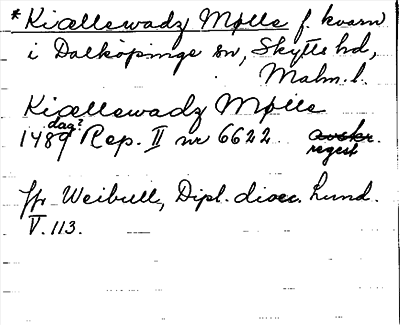 *Kiællewadz Mølle f. kvarn
i Dalköpinge sn, Skytts hd,
Malm. l.
Kiællewadz Mølle
1489 dag? Rep. II nr 6622. avskr.
regest
Jfr Weibull, Dipl. dioec. Lund.
V. 113.